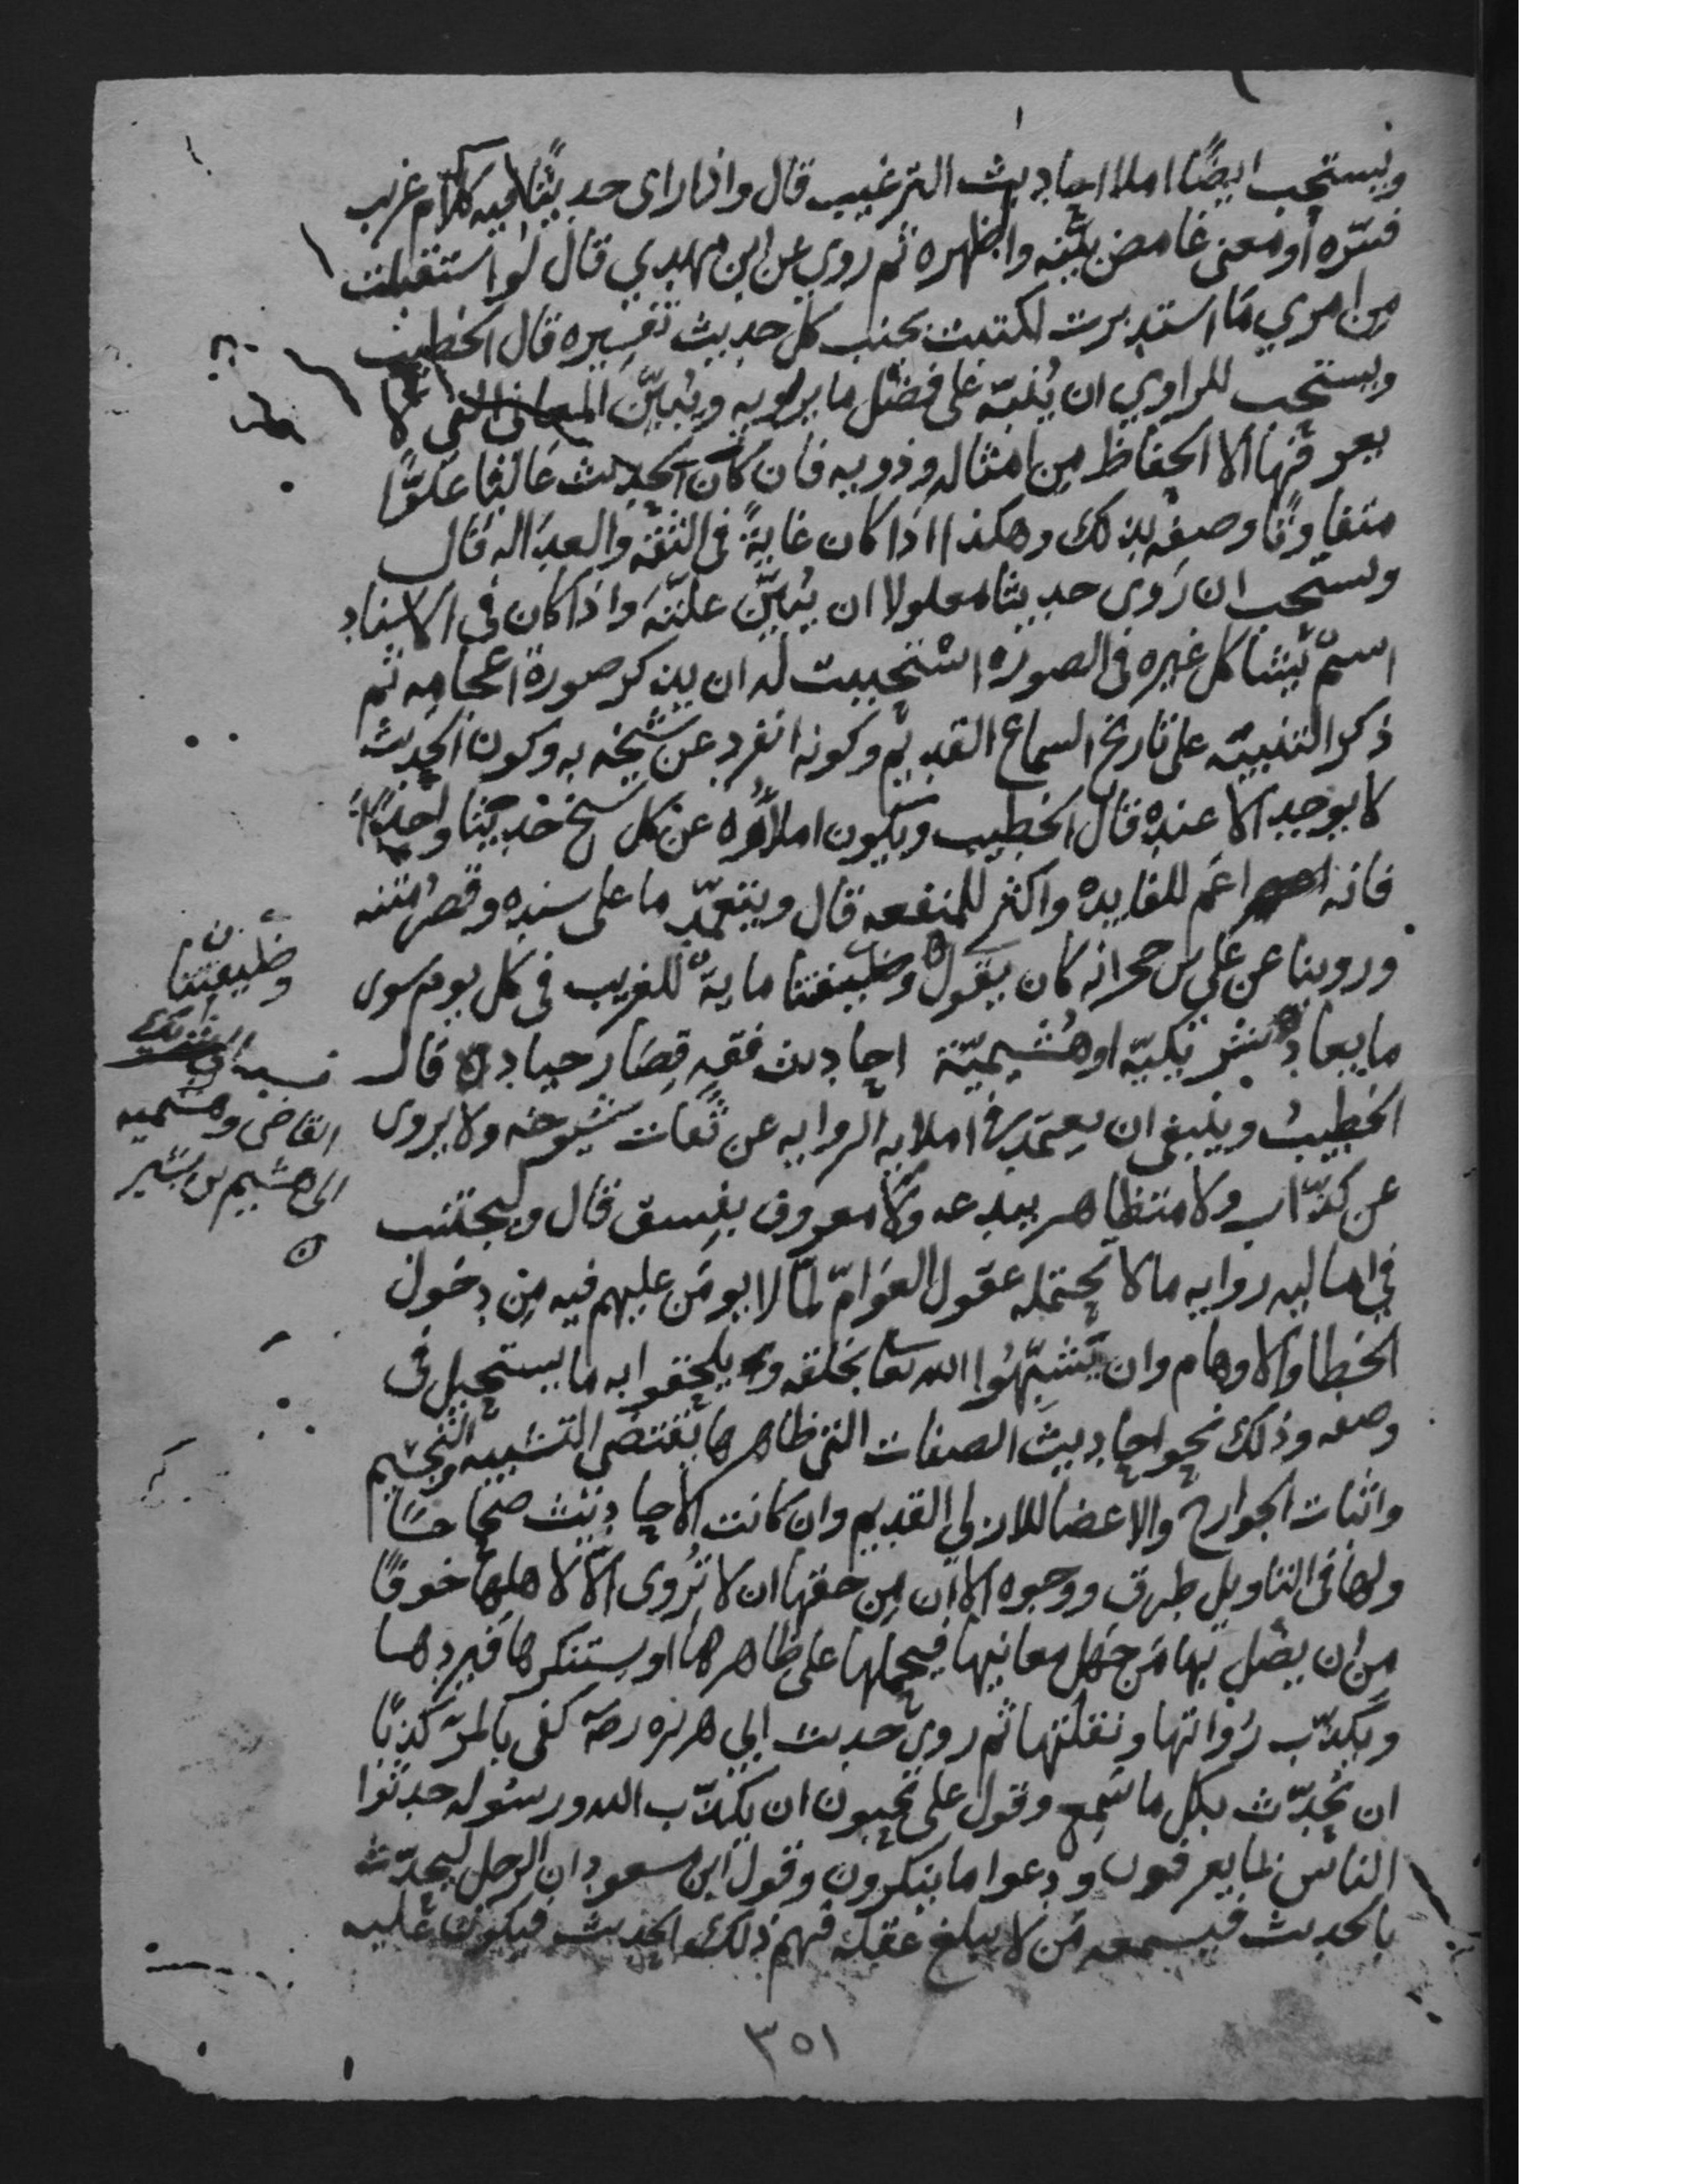 ويستحب ايضًا املا احاديث الترغيب قال واذا راى حديثًا فيه كلام غريب
فسّره أو معنى غامض بيّنه واظهره ثم روى عن ابن مهدي قال لو استقبلت
من امري ما استدبرت لكتبت بجنب كل حديث تفسيره قال الخطيب
ويستحب للراوي ان يُنبّه على فضل ما يرويه ويُبيّن المعاني التي لا
يعرفها الا الحفاظ من امثاله وذويه فان كان الحديث عاليًا علوًّا
متفاوتًا وصفه بذلك وهكذا اذا كان غايةً في الثقة والعدالة قال
ويستحب ان روى حديثا معلولا ان يُبيّن علّته واذا كان في الاسناد
اسمٌ يشاكل غيره في الصورة استحببت له ان يذكر صورة اعجامه ثم
ذكر التنبيه على تاريخ السماع القديم وكونه انفرد عن شيخه به وكون الحديث
لا يوجد الا عنده قال الخطيب ويكون املاؤه عن كل شيخ حديثا واحدًا
فانه اعم للفايدة واكثر للمنفعه قال ويتعمّد ما على سنده وقصُر متنه
وروينا عن علي بن حجر انه كان يقول وظيفتنا مايةٌ للغريب في كل يوم سوى
ما يعاد شريكيّة او هُشيميّة احاديث فقه قِصَار جياد قال
الخطيبُ وينبغي ان يعتمد في املايه الروايه عن ثقات شيوخه ولا يروى
عن كذّاب ولا متظاهر ببدعه ولا معروف بفسق قال وليجتنب
في اماليه روايه ما لا تحتمله عقول العوامّ لما لا يومَن عليهم فيه من دخول
الخطا والاوهام وان يُشبِّهُوا الله تعا بخلقه ويلحقوا به ما يستحيل في
وصفه وذلك نحو احاديث الصفات التي ظاهرها يقتضي التشبيه والتجسيم
واثبات الجوارح والاعضا للازلي القديم وان كانت الاحاديث صحاحًا
ولها في التاويل طرق ووجوه الا ان من حقها ان لا تُروى الّا لاهلها خوفًا
من ان يضل بها من جهل معانيها فيحملها على ظاهرها او يستنكرها فيردها
ويكذّب رواتها ونقلتها ثم روى حديث ابي هريره رضه كفى بالمرء كذبًا
ان يُحدّث بكل ما سمع وقول علي تحبون ان يكذّب الله ورسوله حدثوا
الناس بما يعرفون ودعوا ما ينكرون وقول ابن مسعود ان الرجل ليحدّث
بالحديث فيسمعه من لا يبلغ عقله فهم ذلك الحديث فيكون عليه
وظيفتنا
نسبه الى شريك
القاضى وهشيميه
الى هشيم بن بشير
٣٥١